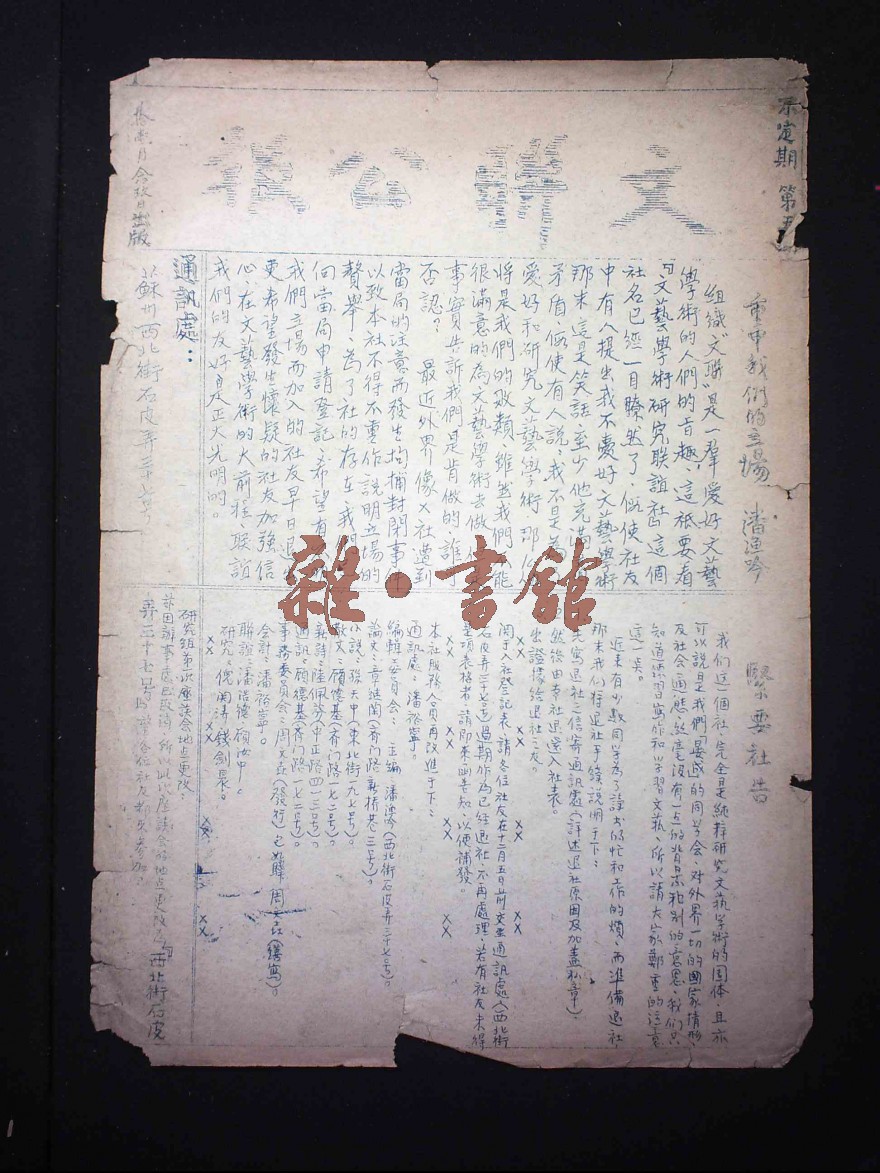 不定期 第五
文聯公報
每逢月令段日出版
重申我們的立場 潘漁吟
組織"文聯"是一羣愛好文藝
學術的人們的旨趣,這祇要看
『文藝學術研究联誼社』這個
社名已經一目瞭然了,假使社友
中有人提出我不愛好文藝學術
那末這是笑話,至少他充滿
矛盾,假使有人說,我不是為
愛好和研究文藝學術那
將是我們的敗類,雖然我們不能
很滿意的為文藝學術去做
事實告訴我們是肯做的誰
否認? 最近外界像X社遭到
當局的注意而發生拘捕封閉事
以致本社不得不重作說明立場的
贅舉,為了社的存在我
向當局申請登記,希望有
我們立場而加入的社友早日退
更希望發生懷疑的社友加強信
心,在文藝學術的大前提,联誼
我們的友好是正大光明的。
通訊處:
蘇州西北街石皮弄三十七号
緊要社告
我们这一個社,完全是純粹研究文藝学術的团体,且亦
可以說是我們『晨成』的同学会,对外界一切的國家情形
及社会心態,絲毫沒有一点的背景和别的意思,我们只
知道练习寫作和学習文藝,所以請大家鄭重的注意
這一点。
近來有少數同学為了讀书的忙和工作的煩,而準備退社
那末我们將退社手續說明于下:
先寫退社之信寄通訊處(詳述退社原因及加蓋私章)
然後由本社退還入社表。
出證據给退社之友。
XX XX XX
関于入社登記表,請各位社友在十二月五日前交至通訊處(西北街
石皮弄三十七号)过期作為已經退社,不再處理,若有社友未得
項表格者,請即來函告知,以便補發。
XX XX XX
本社服務人員再改進于下:
通訊处:潘裕寧。
編輯委員会:主編 潘漁吟(西北街石皮弄三十七号)。
論文:章維周(齐门路新橋巷三号)。
小說:張天中(東北街九七号)。
散文:顾德基(齐门路一七二号)。
新詩:陸佩芬(中正路四一三号)。
通訊:顾德基(齐门路一七二号)。
事務委員会:周文垚(發行) 周文垚(繕寫)。
会計:潘裕寧。
聯誼:潘浩德 顾汝中。
研究:倪開清 錢劍辰。
XX XX XX
研究組第一次座談会地点更改:
茲因辦事處已改過,所以此次座談会的地点更改為『西北街石皮
弄三十七号』,希各位社友都來參加。
雜·書館